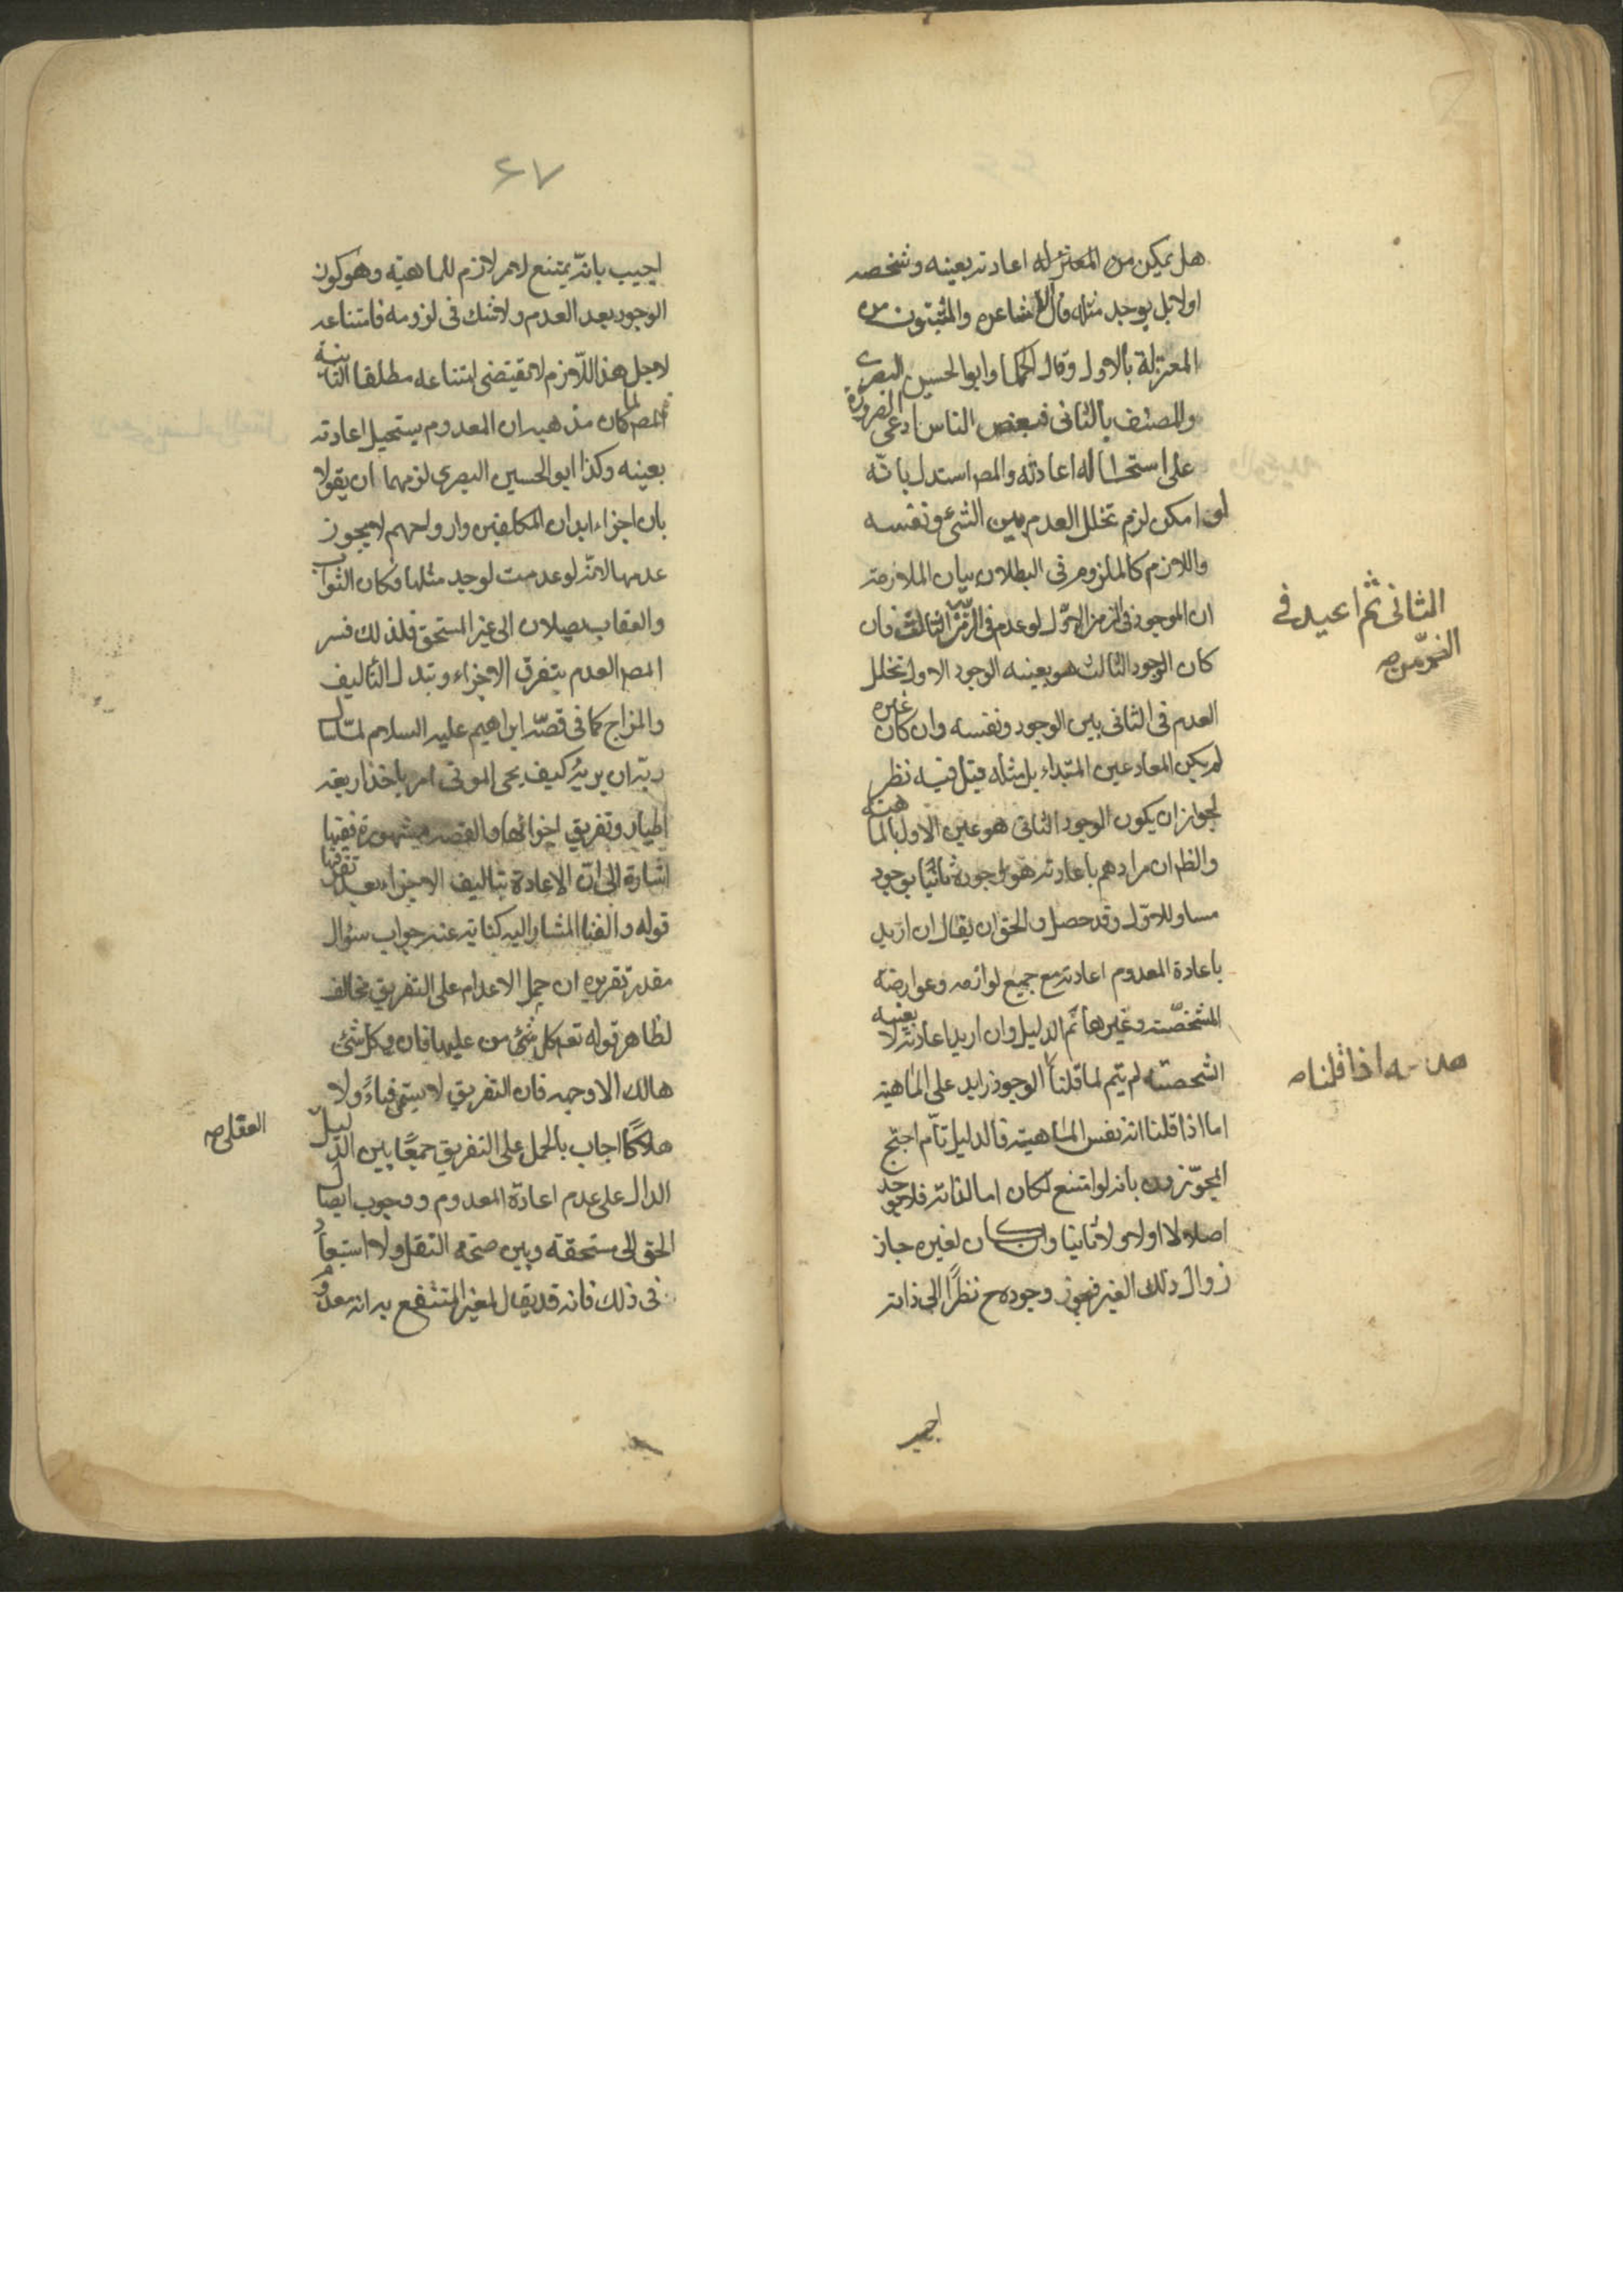 هل يمكن من المعتزله اعادته بعينه وشخصه
اولا بل يوجد مثله قال الاشاعره والمثبتون من
المعتزلة بالاول وقال الحكما وابو الحسين البصرى
والمصنف بالثانى فبعض الناس ادعى الضرورة
على استحاله اعادته والمصـ استدل بانّه
لو امكن لزم تخلل العدم بين الشئ ونفسه
واللازم كالملزوم فى البطلان بيان الملازمة
ان الموجود فى الزمن الاوّل لو عدم فى الزمن الثالث فان
الثانى ثم اعيد فى
الزمن صه
كان الوجود الثالث هو بعينه الوجود الاول تخلل
العدم فى الثانى بين الوجود ونفسه وان كان غيره
لم يكن المعاد عين المبتداء بل مثله قيل فيه نظر
لجواز ان يكون الوجود الثانى هو عين الاول بالماهية
والظ ان مرادهم باعادته هو وجوده ثانيًا بوجود
مساو للاوّل وقد حصل والحق ان يقال ان اريد
باعادة المعدوم اعادته مع جميع لوازمه وعوارضه
المشخصّة وغيرها تم الدليل وان اريد اعادته لا بعينه
الشخصية لم يتم لما قلنا الوجود زايد على الماهية
اذا قلنا صه
اما اذا قلنا انه نفس الماهية فالدليل تام احتج
المجوّزون بانه لو امتنع لكان اما لذاته فلا يوجد
اصلا لا اولا ولا ثانيا وان كان لغيره جاز
زوال ذلك الغير فيجوز وجوده ح نظرًا الى ذاته
اجيب
٤٧
اجيب بانّه يمتنع لامر لازم للماهيّة وهو كون
الوجود بعد العدم ولا شك فى لزومه فامتناعه
لاجل هذا اللّازم لا يقتضى امتناعه مطلقا الثانية
المصـ لما كان مذهبه ان المعدوم يستحيل اعادته
بعينه وكذا ابو الحسين البصرى لزمهما ان يقولا
بان اجزاء ابدان المكلفين وارواحهم لا يجوز
عدمها لانّه لو عدمت لوجد مثلها فكان الثواب
والعقاب يصلان الى غير المستحق فلذلك فسر
المصـ العدم بتفرق الاجزاء وتبدل التأليف
والمزاج كما فى قصّة ابراهيم عليه السلام لمّا سال
ربّه ان يريه كيف يحى الموتى امر باخذ اربعة
اطيار وتفريق اجزائها والقصه مشهورة ففيها
اشارة الى انّ الاعادة بتاليف الاجزاء بعد تفرقها
قوله والفنا المشار اليه كناية عنه جواب سؤال
مقدر تقريره ان حمل الاعدام على التفريق مخالف
لظاهر قوله تعـ كل شئ من عليها فان وكل شئ
هالك الا وجهه فان التفريق لا يسمى فناءً ولا
هلاكًا اجاب بالحمل على التفريق جمعًا بين الدّليل
العقلى صه
الدال على عدم اعادة المعدوم ووجوب ايصال
الحق الى مستحقه وبين صحة النقل ولا استبعاد
فى ذلك فانه قد يقال لغير المنتفع به انه معدوم